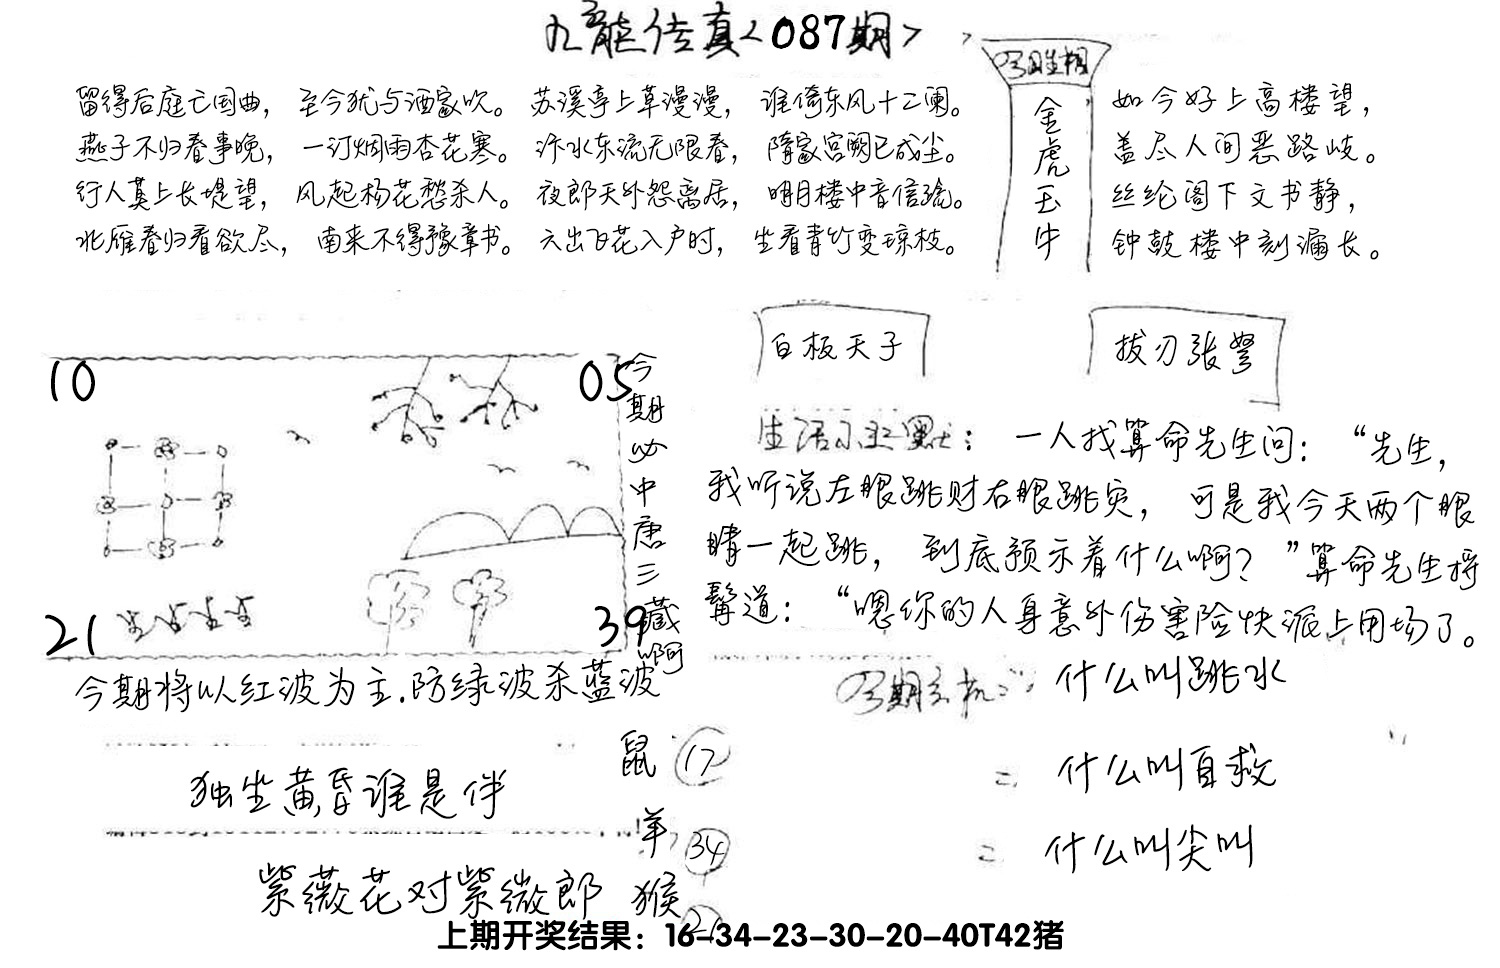 九龙传真<087期>
今日生相
金虎玉牛
留得后庭亡国曲，至今犹与酒家吹。苏溪亭上草漫漫，谁倚东风十二阑。
燕子不归春事晚，一汀烟雨杏花寒。汴水东流无限春，隋家宫阙已成尘。
行人莫上长堤望，风起杨花愁杀人。夜郎天外怨离居，明月楼中音信疏。
北雁春归看欲尽，南来不得豫章书。六出飞花入户时，坐看青竹变琼枝。
如今好上高楼望，
盖尽人间恶路岐。
丝纶阁下文书静，
钟鼓楼中刻漏长。
白板天子
拔刃张弩
10
05
21
39
今期必中唐三藏啊
今期将以红波为主.防绿波杀蓝波
生活小幽默：一人找算命先生问：“先生，
我听说左眼跳财右眼跳灾，可是我今天两个眼
睛一起跳，到底预示着什么啊？”算命先生捋
髯道：“嗯你的人身意外伤害险快派上用场了。
今期玄机：什么叫跳水
什么叫自救
什么叫尖叫
独坐黄昏谁是伴
紫薇花对紫微郎
鼠 17
羊 34
猴
上期开奖结果：16-34-23-30-20-40T42猪